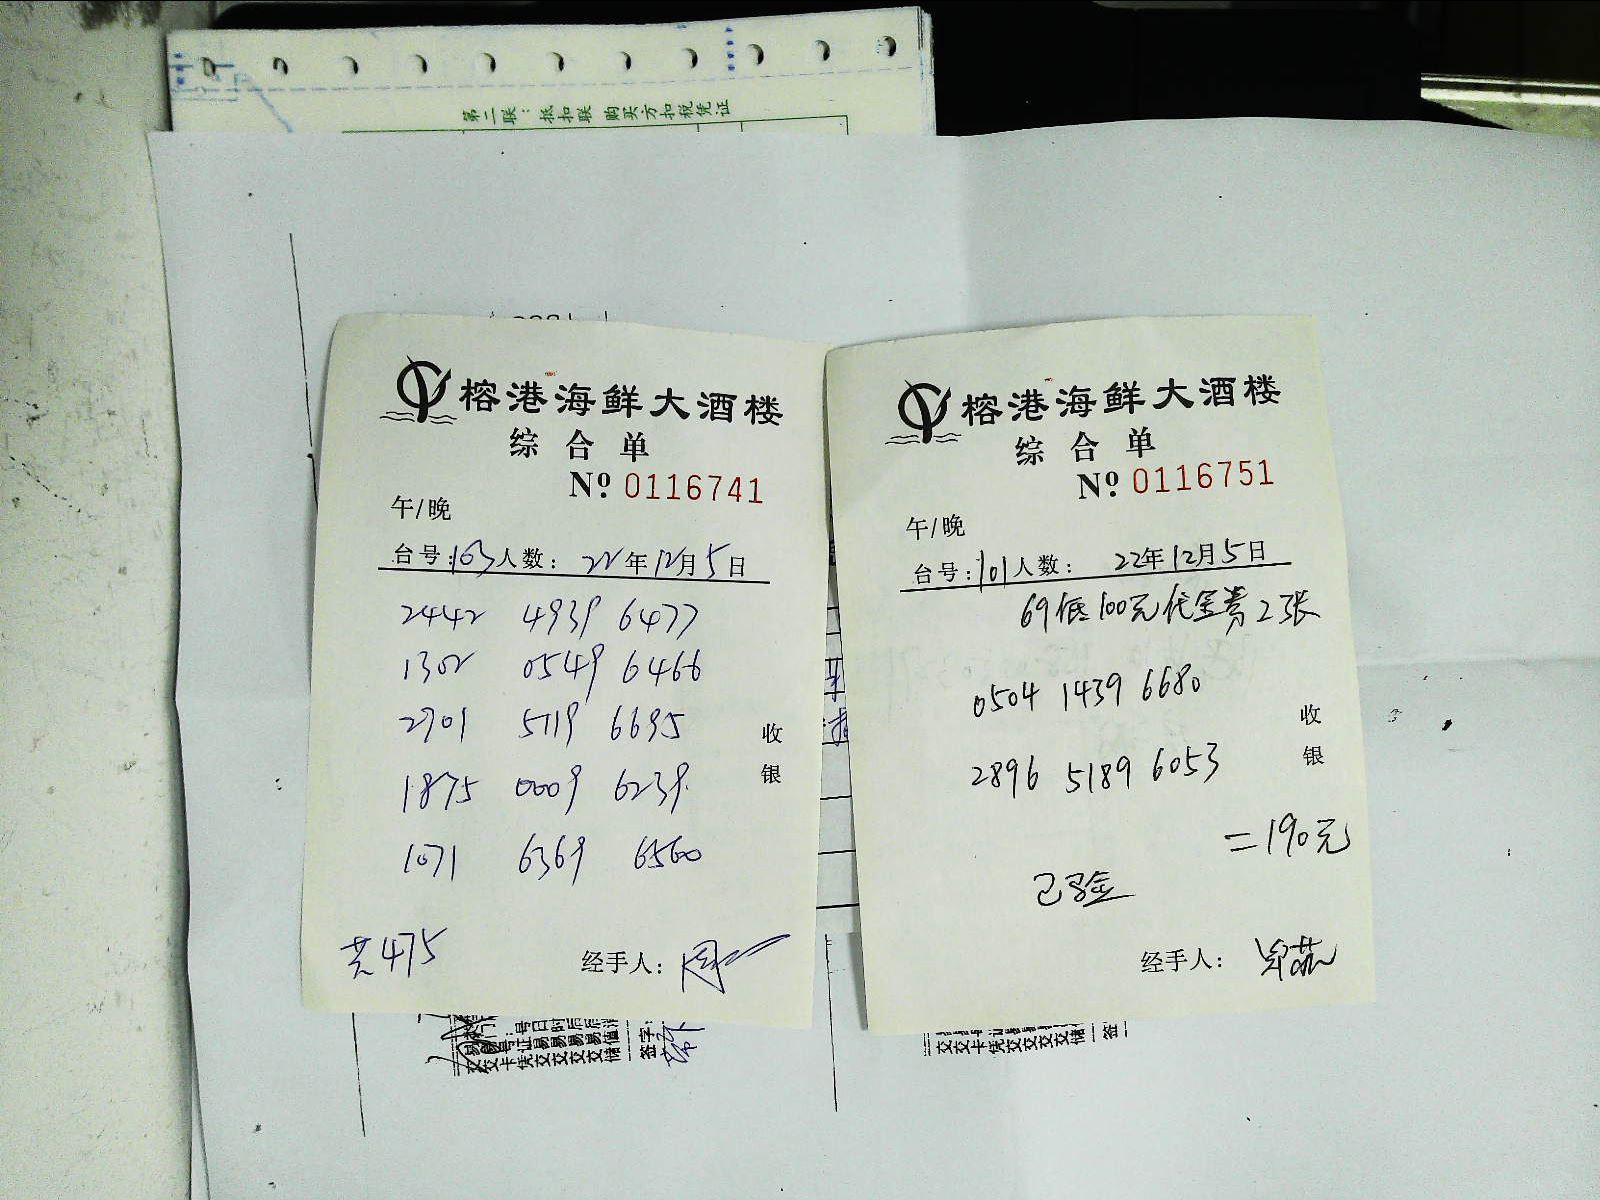 第二联：抵扣联 购买方扣税凭证
榕港海鲜大酒楼
综合单
Nº 0116741
午/晚
台号:103人数： 22年12月5日
2442 4939 6477
1302 0549 6466
2701 5119 6695
1875 0009 6239
1071 6369 6560
收
银
共475
经手人：
榕港海鲜大酒楼
综合单
Nº 0116751
午/晚
台号:101人数： 22年12月5日
69低100元代金券2张
0504 1439 6680
2896 5189 6053
收
银
=190元
已验
经手人：